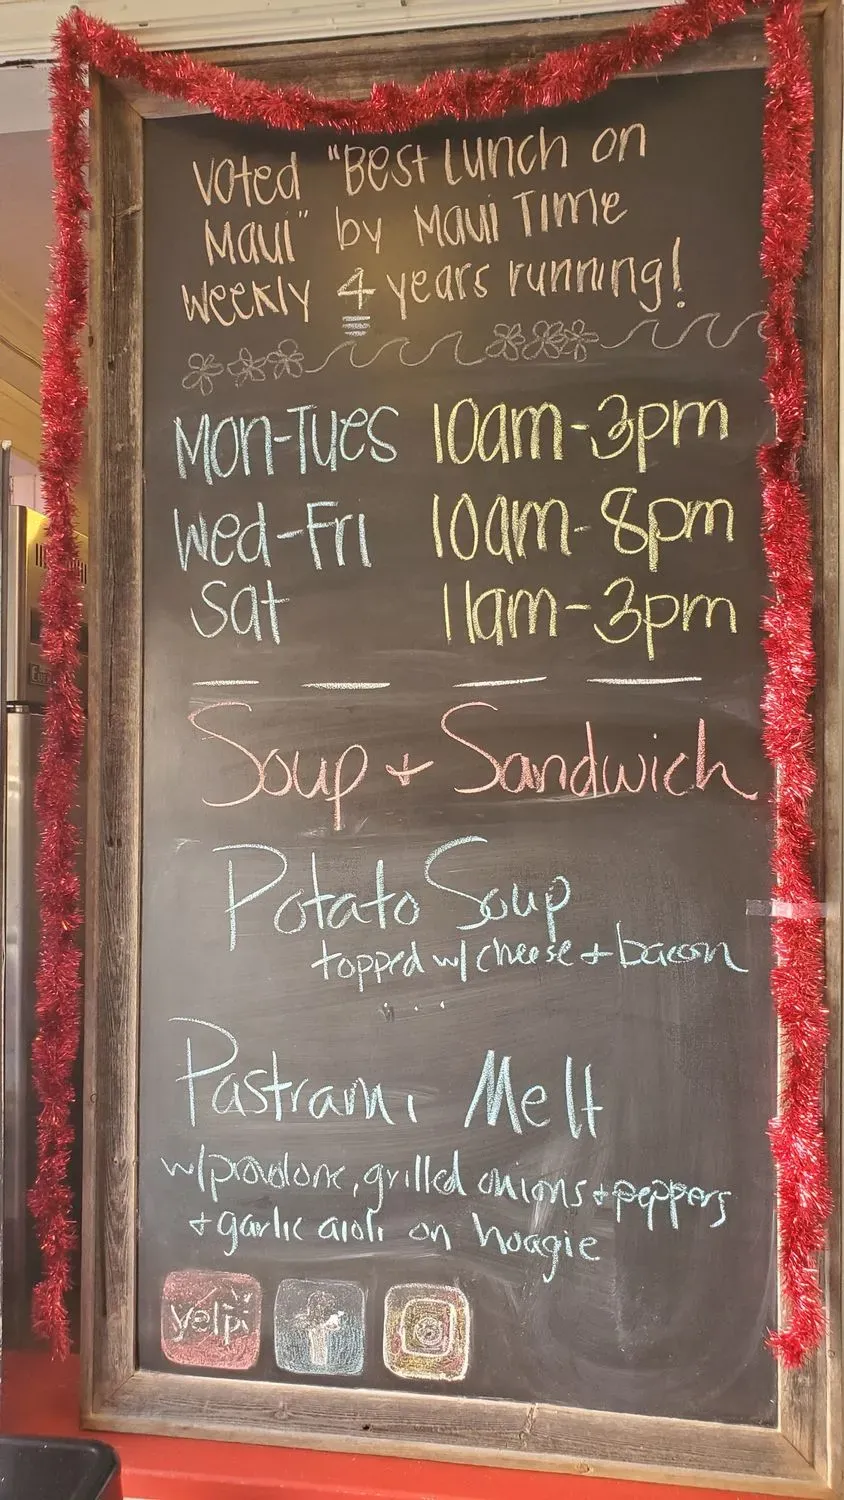 Voted "Best Lunch on
Maui" by Maui Time
Weekly 4 years running!
Mon-Tues 10am-3pm
Wed-Fri 10am-8pm
Sat 11am-3pm
Soup + Sandwich
Potato Soup
topped w/ cheese + bacon
Pastrami Melt
w/ provolone, grilled onions + peppers
+ garlic aioli on hoagie
yelp f